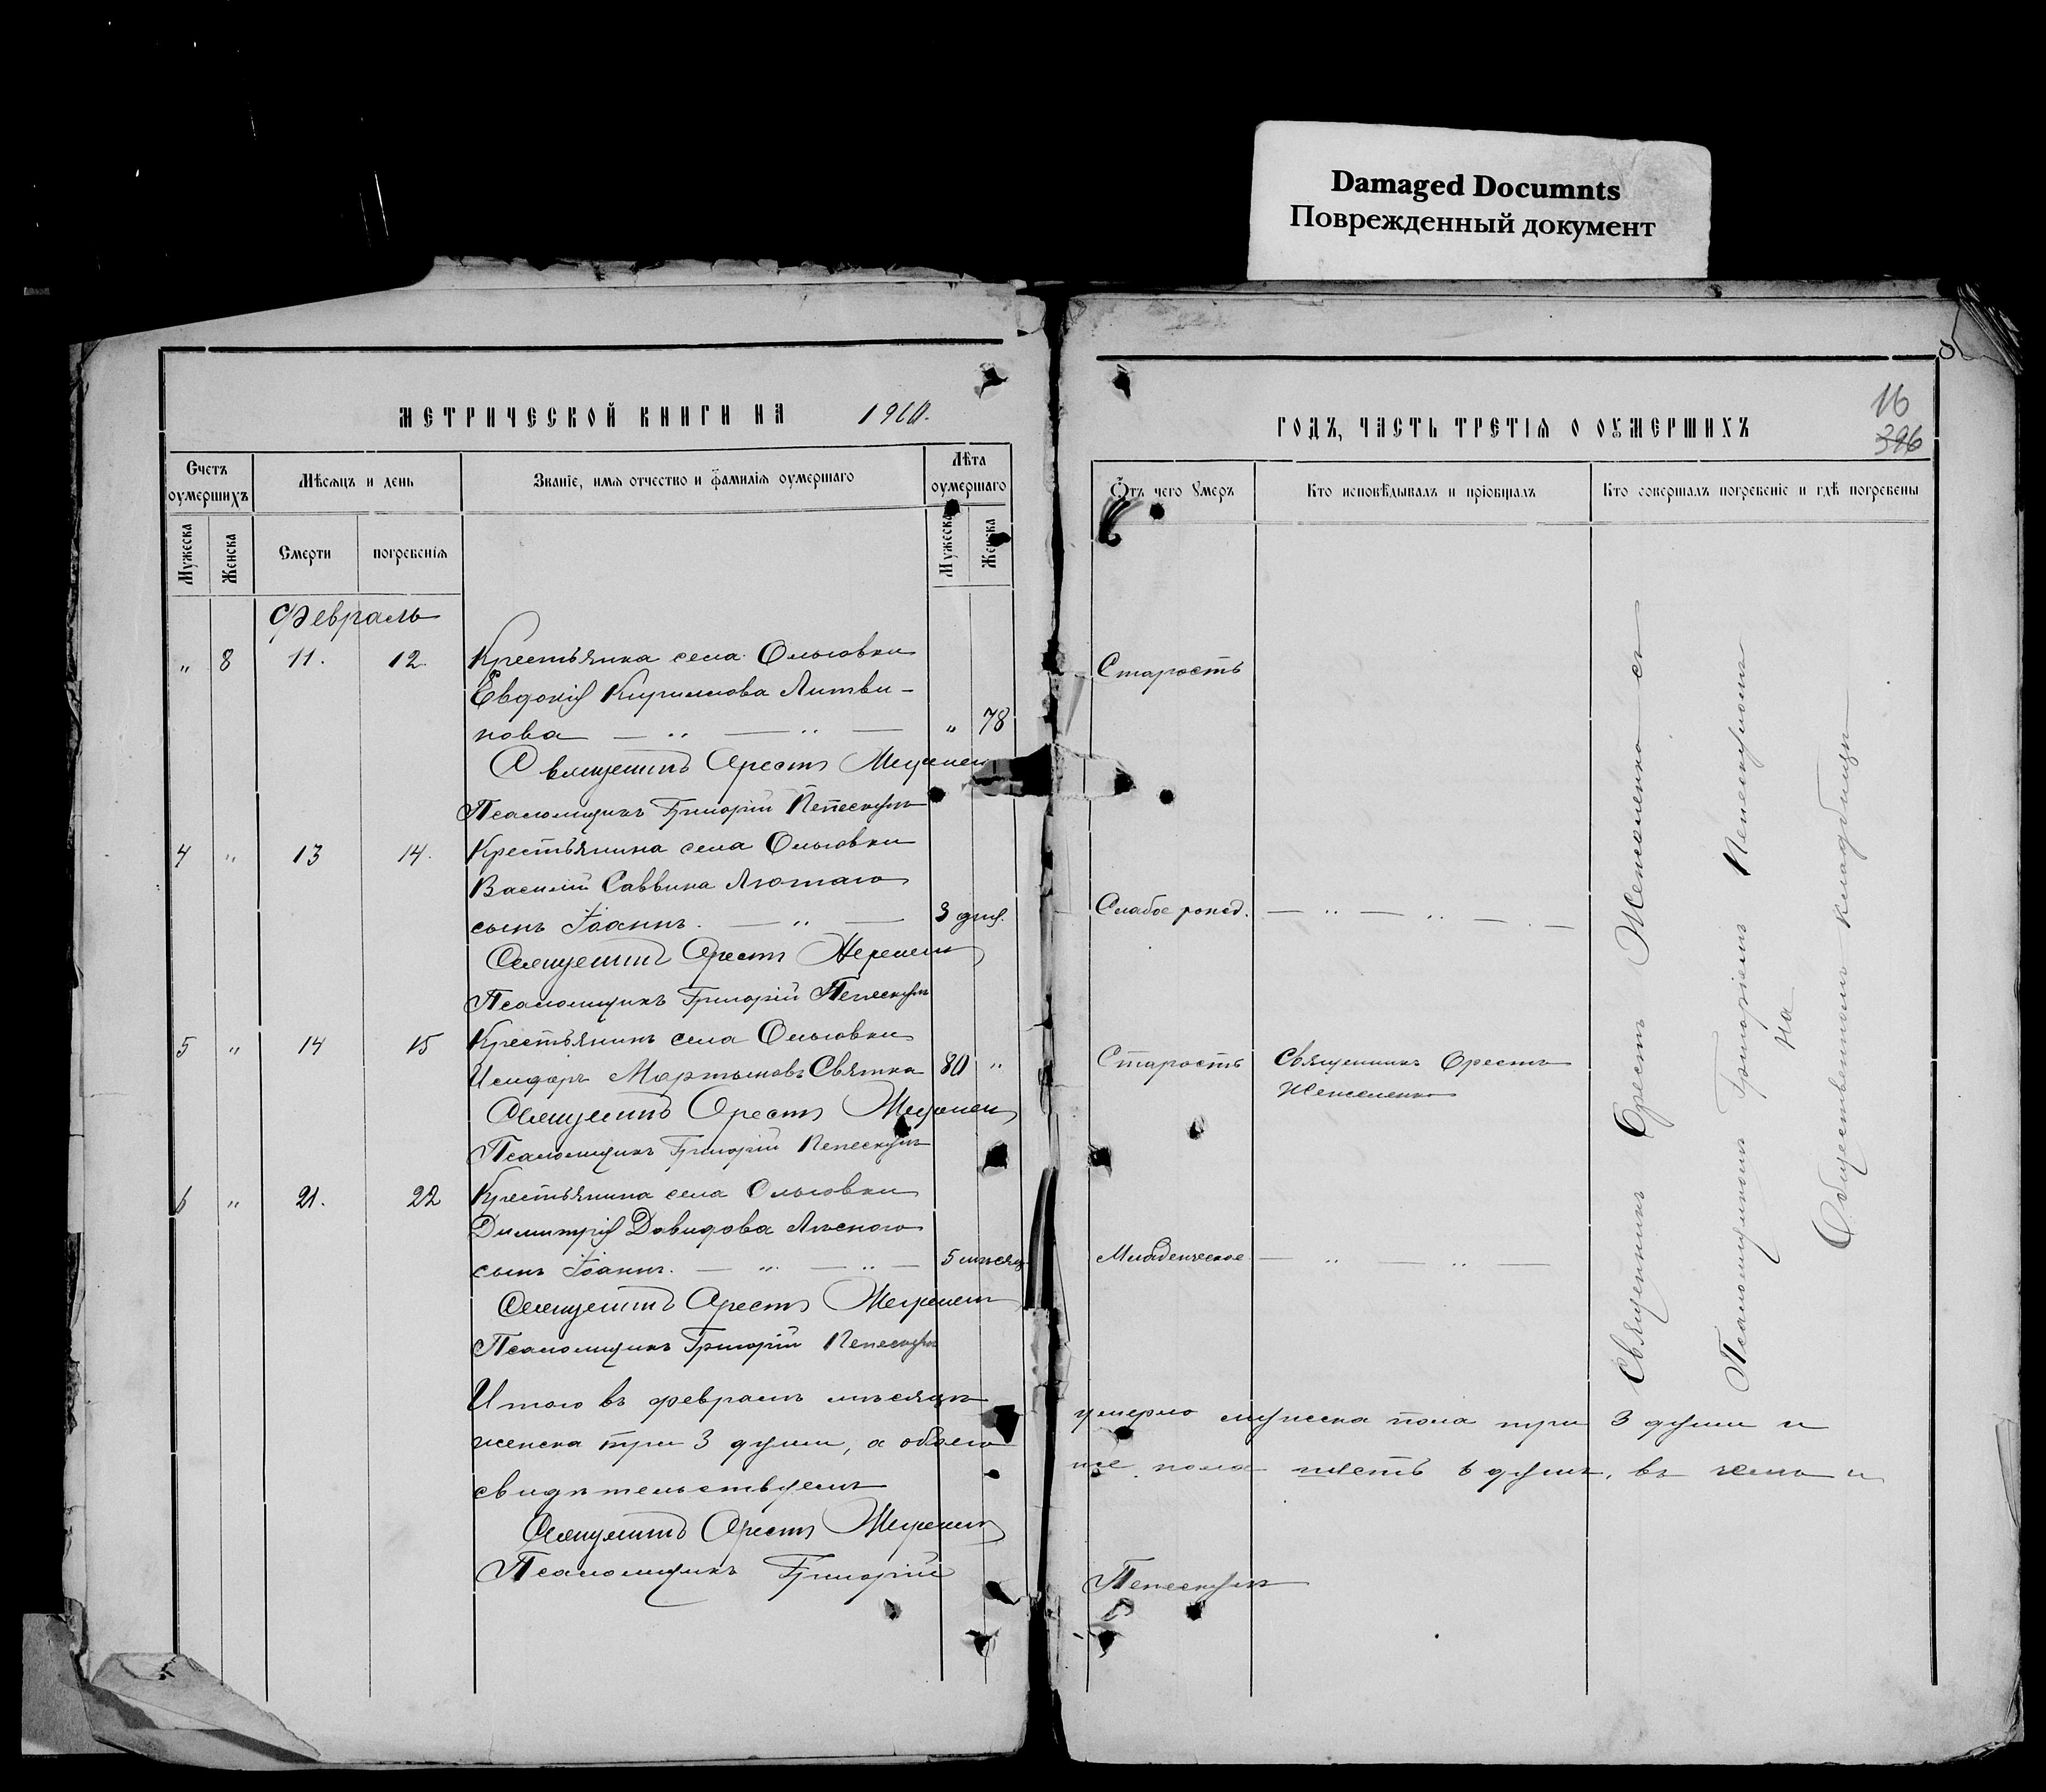 Damaged Documnts
Поврежденный документ
МЕТРИЧЕСКОЙ КНИГИ НА 1910.
ГОДЪ, ЧАСТЬ ТРЕТІЯ О ОУМЕРШИХЪ
16
396
Счетъ оумершихъ
Мѣсяцъ и день
Званіе, имя отчество и фамилія оумершаго
Лѣта оумершаго
Отъ чего умеръ
Кто исповѣдывалъ и пріобщалъ
Кто совершалъ погребеніе и гдѣ погребены
Мужеска
Женска
Смерти
погребенія
Мужеска
Женска
Февраль
„ 8 11. 12. Крестьянка села Ольговки
Евдокія Кириллова Литви-
нова „ 78
Старость
Священникъ Орестъ
Псаломщикъ Григорій Пепескулъ
4 „ 13 14. Крестьянина села Ольговки
Василія Саввина Лютаго
сынъ Іоаннъ. 3 дня.
Слабое рожд.
Священникъ Орестъ
Псаломщикъ Григорій Пепескулъ
5 „ 14 15 Крестьянинъ села Ольговки
Исидоръ Мартыновъ Святка 80 „
Старость
Священникъ Орестъ
Священникъ Орестъ
Псаломщикъ Григорій Пепескулъ
6 „ 21. 22 Крестьянина села Ольговки
Димитрія Давидова Лѣсного
сынъ Іоаннъ. 5 мѣсяц.
Младенческое
Священникъ Орестъ
Псаломщикъ Григорій Пепескулъ
Священникъ Орестъ съ
Псаломщикомъ Григоріемъ Пепескуломъ
на
Общественномъ кладбищѣ
Итого въ февралѣ мѣсяцѣ умерло мужска пола три 3 души и
женска три 3 души, а обоего же пола шесть 6 душъ, въ чемъ и
свидѣтельствуемъ
Священникъ Орестъ
Псаломщикъ Григорій Пепескулъ